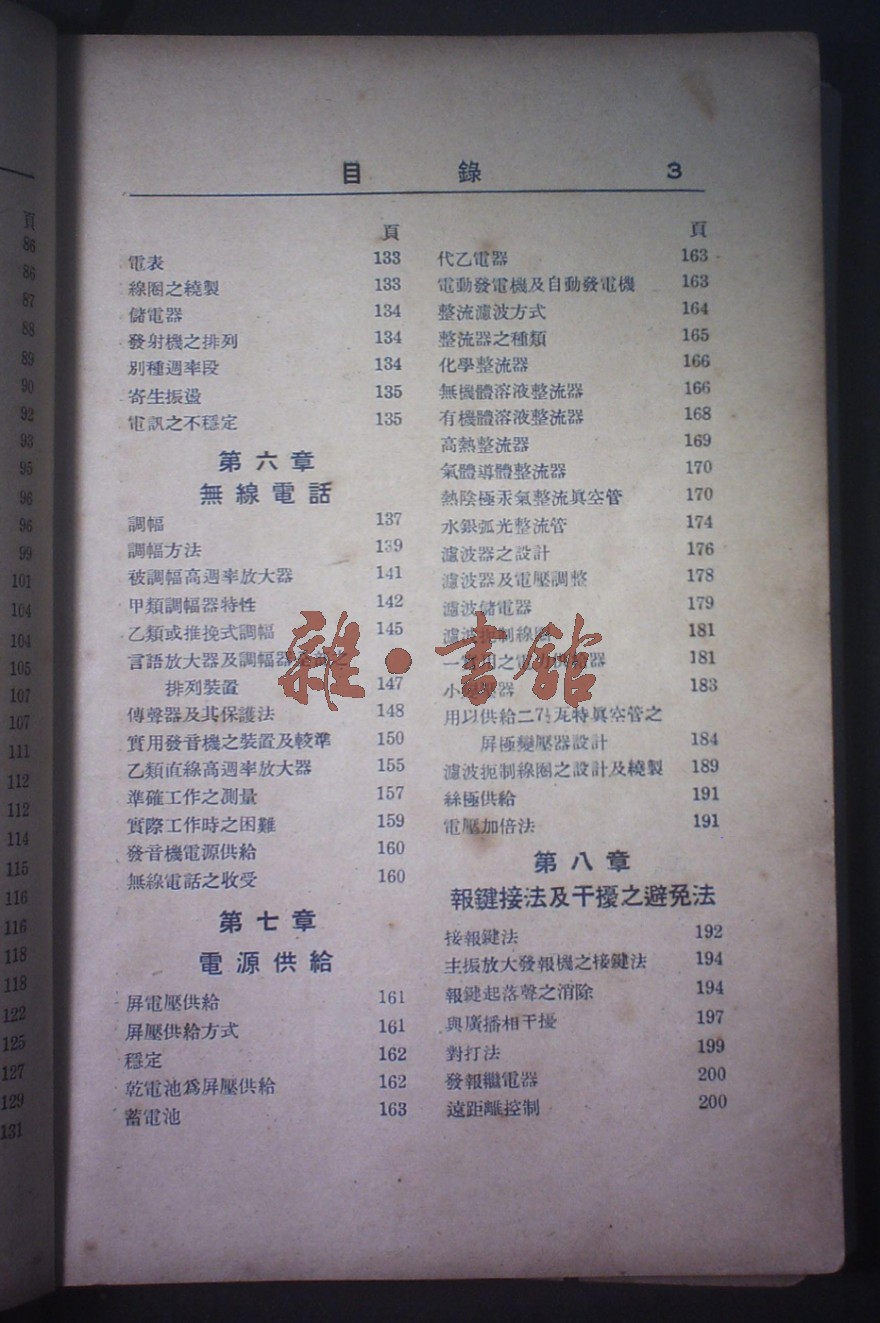 目 錄 3
頁
電表 133
線圈之繞製 133
儲電器 134
發射機之排列 134
別種週率段 134
寄生振盪 135
電訊之不穩定 135
第六章
無線電話
調幅 137
調幅方法 139
被調幅高週率放大器 141
甲類調幅器特性 142
乙類或推挽式調幅 145
言語放大器及調幅器全部之
排列裝置 147
傳聲器及其保護法 148
實用發音機之裝置及較準 150
乙類直線高週率放大器 155
準確工作之測量 157
實際工作時之困難 159
發音機電源供給 160
無線電話之收受 160
第七章
電源供給
屏電壓供給 161
屏壓供給方式 161
穩定 162
乾電池爲屏壓供給 162
蓄電池 163
頁
代乙電器 163
電動發電機及自動發電機 163
整流濾波方式 164
整流器之種類 165
化學整流器 166
無機體溶液整流器 166
有機體溶液整流器 168
高熱整流器 169
氣體導體整流器 170
熱陰極汞氣整流眞空管 170
水銀弧光整流管 174
濾波器之設計 176
濾波器及電壓調整 178
濾波儲電器 179
濾波扼制線圈 181
一實用之電力供給器 181
小變壓器 183
用以供給二7½瓦特眞空管之
屏極變壓器設計 184
濾波扼制線圈之設計及繞製 189
絲極供給 191
電壓加倍法 191
第八章
報鍵接法及干擾之避免法
接報鍵法 192
主振放大發報機之接鍵法 194
報鍵起落聲之消除 194
與廣播相干擾 197
對打法 199
發報繼電器 200
遠距離控制 200
頁
86
86
87
88
89
90
92
93
95
96
96
99
101
104
104
105
107
107
111
112
112
114
115
116
116
118
118
122
125
127
129
131
雜·書館